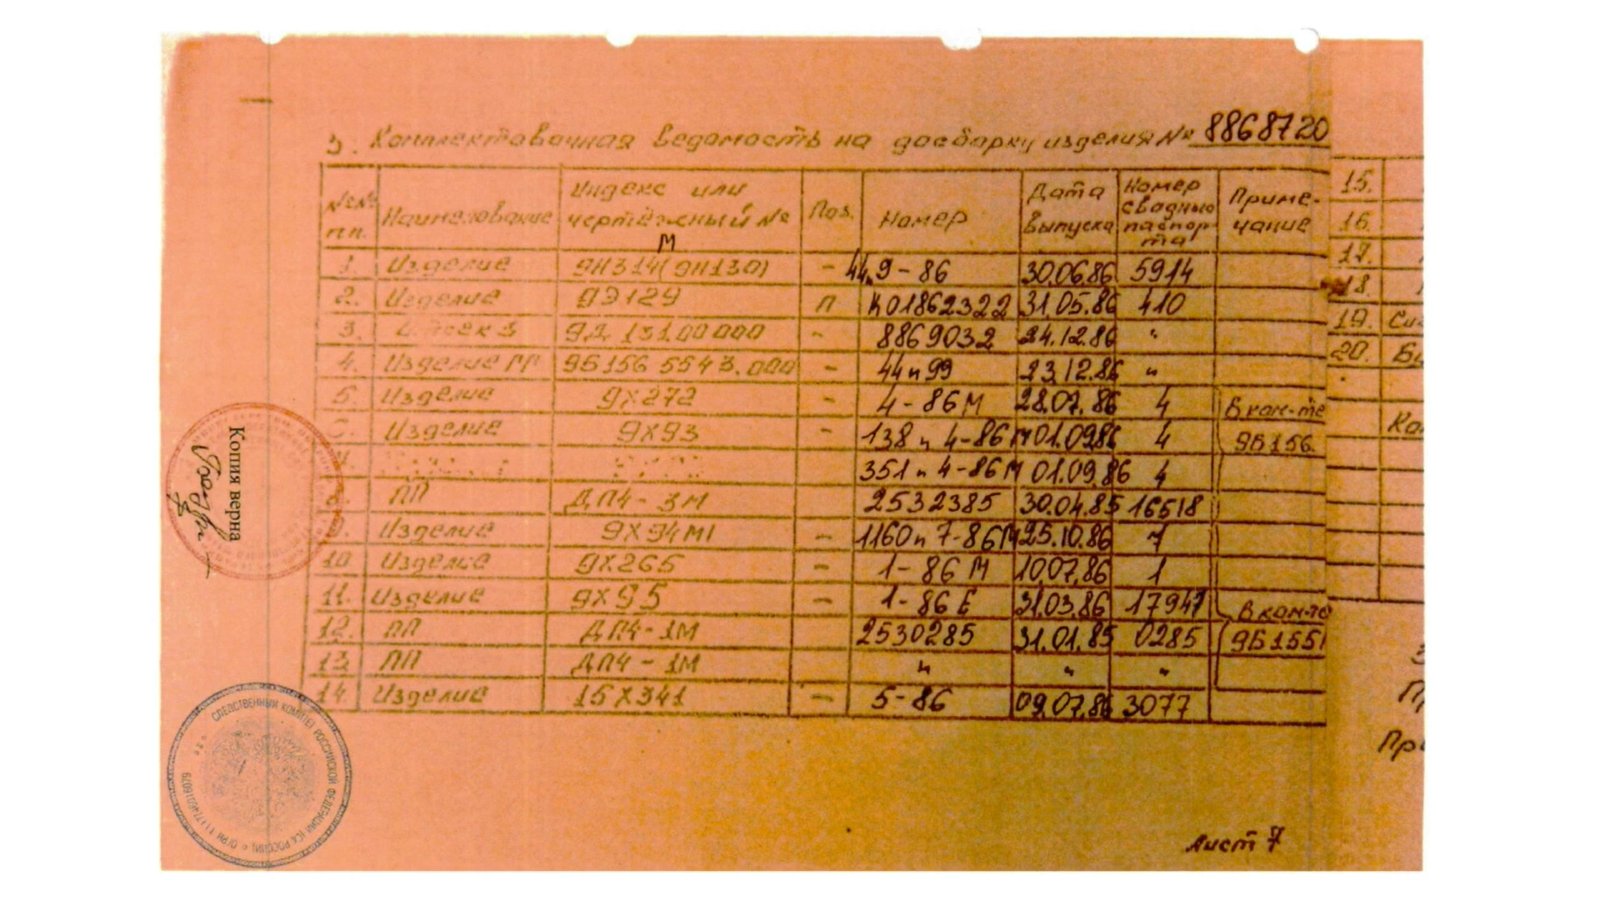 3. Комплектовочная ведомость на досборку изделия № 8868720
№№ пп. Наименование Индекс или чертёжный № Поз. Номер Дата выпуска Номер сводного паспорта Примечание
М
1. Изделие 9Н314(9Н130) - 44и9-86 30.06.86 5914
2. Изделие 9Э129 П К01862322 31.05.86 410
3. 9Д131.00000 - 8869032 24.12.86 "
4. Изделие 9Б156 5543.000 - 44и99 23.12.86 "
5 Изделие 9Х272 - 4-86М 28.07.86 4 В ком-те
Изделие 9Х93 - 138и 4-86М 01.09.86 4 9Б156
351и 4-86М 01.09.86 4
8. ПП ДП4-3М 2532385 30.04.85 16518
Изделие 9Х94М1 - 1160и 7-86М 25.10.86 7
10. Изделие 9Х265 - 1-86М 10.07.86 1
11. Изделие 9Х95 - 1-86Е 31.03.86 17947 В ком-те
12. ПП ДП4-1М 2530285 31.01.85 0285 9Б1551
13. ПП ДП4-1М " " "
14. Изделие 15Х341 - 5-86 09.07.86 3077
Лист 7
15.
16.
17.
18.
19.
20.
Копия верна
СЛЕДСТВЕННЫЙ КОМИТЕТ РОССИЙСКОЙ ФЕДЕРАЦИИ (СК РОССИИ) * ОГРН